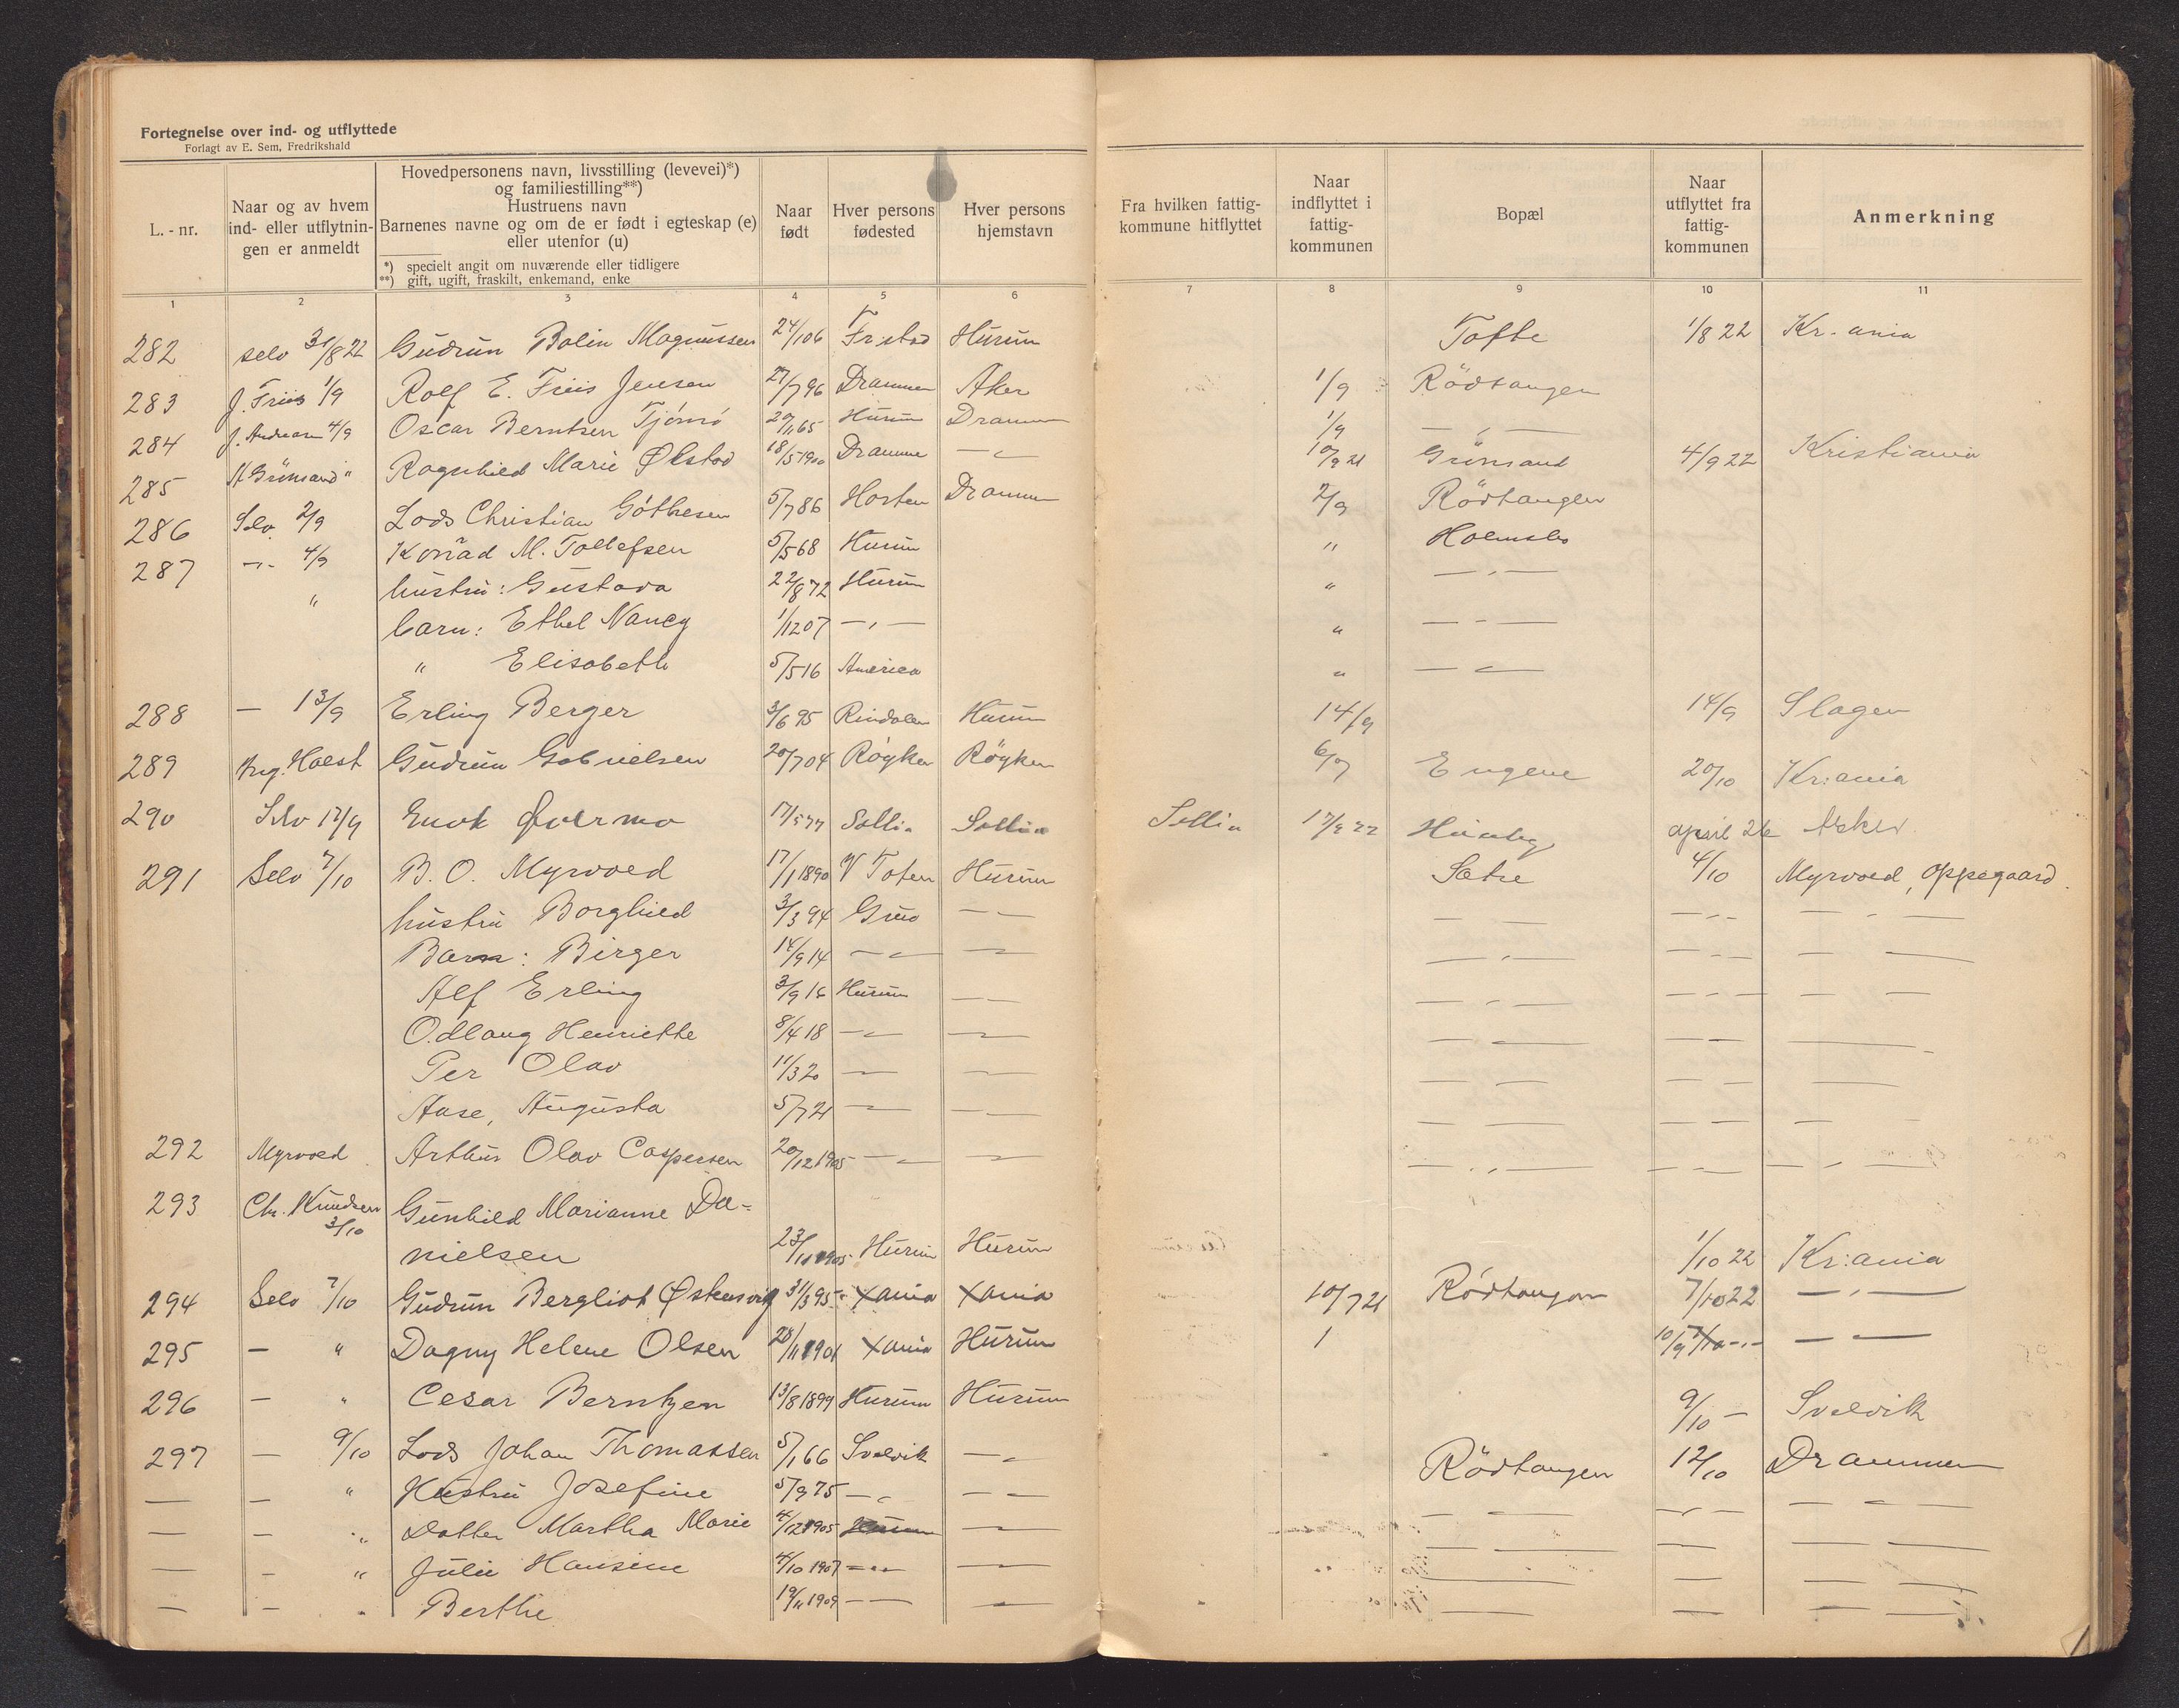 Fortegnelse over ind- og utflyttede
Forlagt av E. Sem, Fredrikshald
L. - nr.
Naar og av hvem ind- eller utflytnin- gen er anmeldt
Hovedpersonens navn, livsstilling (levevei)*)
og familiestilling**)
Hustruens navn
Barnenes navne og om de er født i egteskap (e)
eller utenfor (u)
*) specielt angit om nuværende eller tidligere
**) gift, ugift, fraskilt, enkemand, enke
Naar født
Hver persons fødested
Hver persons hjemstavn
Fra hvilken fattig- kommune hitflyttet
Naar indflyttet i fattig- kommunen
Bopæl
Naar utflyttet fra fattig- kommunen
Anmerkning
1 2 3 4 5 6 7 8 9 10 11
282 selv 31/8 22 Gudrun Bolin Magnussen 24/1 06 Fr.stad Hurum Tofte 1/8 22 Kr.ania
283 J. Friis 1/9 Rolf E. Friis Jensen 27/7 96 Drammen Aker 1/9 Rödtangen
284 J. Andreasen 4/9 Oscar Berntsen Tjömö 20/11 65 Hurum Drammen 1/9 — " —
285 A Grönsand " Ragnhild Marie Ølstad 18/5 1900 Drammen — " — 10/9 21 Grönsand 4/9 22 Kristiania
286 Selv 2/9 Lods Christian Göthesen 5/7 86 Horten Drammen 2/9 Rödtangen
287 -"- 4/9 Konrad M. Tollefsen 5/5 68 Hurum " Holmsbo
" hustru: Gustava 22/8 72 Hurum " — " —
barn: Ethel Nancy 1/12 07 — " — " — " —
" Elisabeth 5/5 16 America " — " —
288 — 13/9 Erling Berger 3/6 95 Rindalen Hurum 14/9 14/9 Slagen
289 Ing. Holst Gudrun Gabrielsen 20/7 04 Röyken Röyken 6/7 Engene 20/10 Kr:ania
290 Selv 17/9 Enok Qvermo 17/5 77 Sollia Sollia Sollia 17/9 22 april 26 Asker
291 Selv 7/10 B. O. Myrvold 17/1 1890 V Toten Hurum Sætre 4/10 Myrvold, Oppegaard.
hustru Borghild 3/3 94 Grue — " — — — — " — — " —
Barn: Birger 14/9 14 — " — — " — — " — — " — — —
Alf Erling 3/9 16 Hurum — — — " — — " — — —
Odlaug Henriette 8/4 18 — " — — " — — — — — ——
Per Olav 11/3 20 — " — — " — — — — — ——
Aase, Augusta 5/7 21 — " — — — — — — — — —
292 Myrvold Arthur Olav Caspersen 20/12 1905 — " — — " — — " — — — — " —
293 Chr. Knudsen 3/10 Gunhild Marianne Da-
nielsen 23/11 1905 Hurum Hurum 1/10 22 Kr:ania
294 Selv 7/10 Gudrun Bergliot Østensvig 31/3 95 Xania Xania 10/7 21 Rödtangen 7/10 22 — " —
295 — " Dagny Helene Olsen 28/11 1901 Xania Hurum 1 10/9 7/10 -"- — —
296 — " Cesar Berntzen 13/8 1899 Hurum Hurum 9/10 — Svelvik
297 — 9/10 Lods Johan Thomassen 5/1 66 Svelvik — " — Rödtangen 12/10 Drammen
— — " Hustru Josefine 5/9 75 — " — — — — — — " — — —
— — " Datter Martha Marie 4/12 1905 Hurum — — — — — — —
— — " Julie Hansine 4/10 1907 — " — — — —— — — —
— — " Berthe 19/11 1909 — — — —— — — —